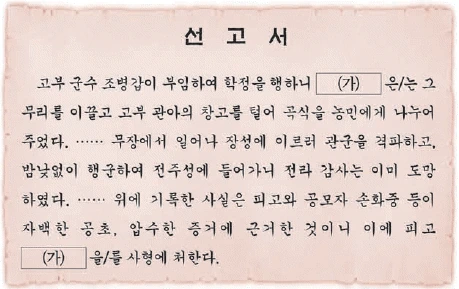 선 고 서
고부 군수 조병갑이 부임하여 학정을 행하니 (가) 은/는 그
무리를 이끌고 고부 관아의 창고를 털어 곡식을 농민에게 나누어
주었다. …… 무장에서 일어나 장성에 이르러 관군을 격파하고,
밤낮없이 행군하여 전주성에 들어가니 전라 감사는 이미 도망
하였다. …… 위에 기록한 사실은 피고와 공모자 손화중 등이
자백한 공초, 압수한 증거에 근거한 것이니 이에 피고
(가) 을/를 사형에 처한다.